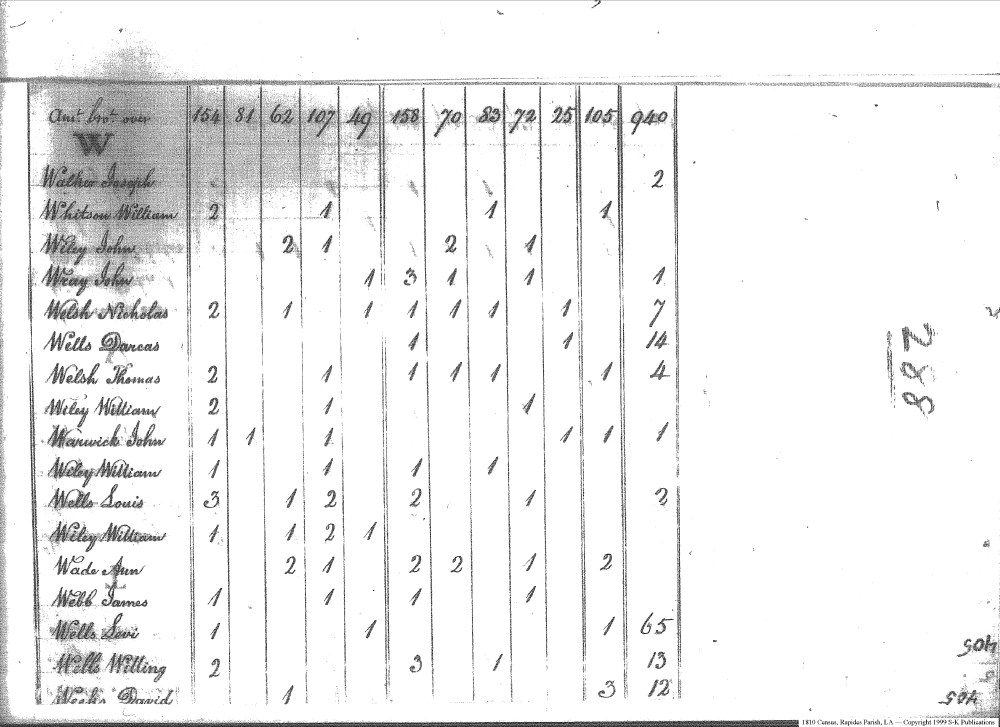 Amt. brot. over 154 81 62 107 49 158 70 83 72 25 105 940
W
Walker Joseph 2
Whitson William 2 1 1 1
Wiley John 2 1 2 1
Wray John 1 3 1 1 1
Welsh Nicholas 2 1 1 1 1 1 1 7
Wells Darcas 1 1 14
Welsh Thomas 2 1 1 1 1 1 4
Wiley William 2 1 1
Warwick John 1 1 1 1 1 1
Wiley William 1 1 1 1
Wells Louis 3 1 2 2 1
Wiley William 1 1 2 1
Wade Ann 2 1 2 2 1 2
Webb James 1 1 1 1
Wells Levi 1 1 1 65
Wells Willing 2 3 1 13
Weeks David 1 3 12
288
405
405
1810 Census, Rapides Parish, LA — Copyright 1999 S-K Publications